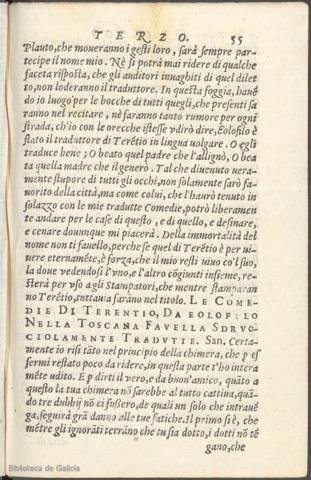 TERZO. 55
Plauto, che moueranno i gesti loro, sarà sempre par-
tecipe il nome mio. Nè si potrà mai ridere di qualche
faceta risposta, che gli auditori inuaghiti di quel dilet
to, non loderanno il traduttore. In questa foggia, hauē
do io luogo per le bocche di tutti quegli, che presenti sa
ranno nel recitare, nè faranno tanto rumore per ogni
strada, ch'io con le orecche istesse vdirò dire, Eolofilo è
stato il traduttore di Terētio in lingua uolgare. O egli
traduce bene; O beato quel padre che l'allignò, O bea
ta quella madre che il generò. Tal che diuenuto uera-
mente stupore di tutti gli occhi, non solamente sarò fa-
uorito della città, ma come colui, che l'haurò tenuto in
solazzo con le mie tradutte Comedie, potrò liberamen
te andare per le case di questo, e di quello, e desinare,
e cenare dounque mi piacerà. Della immortalità del
nome non ti fauello, perche se quel di Terētio è per ui-
uere eternamēte, è forza, che il mio resti uiuo co'l suo,
la doue vedendosi l'vno, e l'altro cōgiunti insieme, re-
sterà per vso a gli Stampatori, che mentre stamparan
no Terētio, tuttauia faràno nel titolo. LE COME-
DIE DI TERENTIO, DA EOLOFILO
NELLA TOSCANA FAVELLA SDRVC-
CIOLAMENTE TRADVTTE. San. Certa-
mente io risi tāto nel principio della chimera, che p es
sermi restato poco da ridere, in questa parte t'ho intera
mēte udito. E p dirti il vero, e da buon'amico, quāto a
questo la tua chimera nō sarebbe al tutto cattiua, quā-
do tre dubbij nō ci fußero, de quali un solo che intrauē
ga, seguirà grā danno alle tue fatiche. Il primo si è, che
mētre gli ignorāti terrāno che tu sia dotto, i dotti nō tē
gano, che
Biblioteca de Galicia